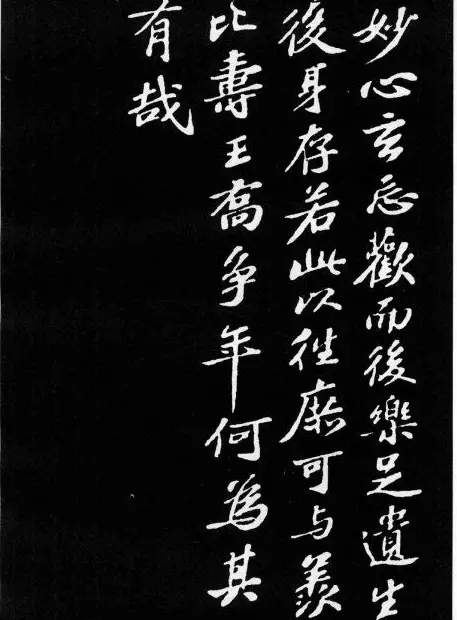 妙心玄忘歡而後樂足遺生
後身存若此以往庶可与羨
比壽王喬争年何為其
有哉